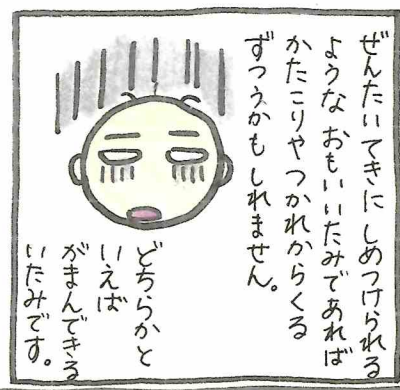 ぜんたいてきに しめつけられる
ような おもいいたみであれば
かたこりや つかれからくる
ずつうかもしれません。
どちらかと
いえば
がまんできる
いたみです。